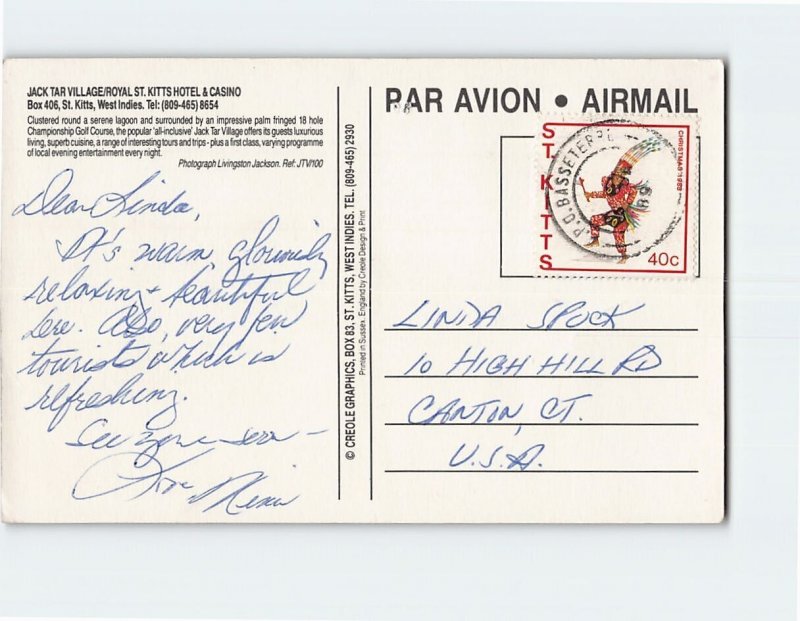 JACK TAR VILLAGE/ROYAL ST. KITTS HOTEL & CASINO
Box 406, St. Kitts, West Indies. Tel: (809-465) 8654
Clustered round a serene lagoon and surrounded by an impressive palm fringed 18 hole
Championship Golf Course, the popular 'all-inclusive' Jack Tar Village offers its guests luxurious
living, superb cuisine, a range of interesting tours and trips - plus a first class, varying programme
of local evening entertainment every night.
Photograph Livingston Jackson. Ref: JTV/100
Dear Linda,
It's warm gloriously
relaxing + beautiful
here. Also, very few
tourists which is
refreshing.
See you soon —
Love
© CREOLE GRAPHICS, BOX 83, ST. KITTS, WEST INDIES. TEL. (809-465) 2930
Printed in Sussex, England by Creole Design & Print
PAR AVION • AIRMAIL
ST. KITTS
CHRISTMAS 1988
40c
G.P.O. BASSETERRE
89
LINDA SPOCK
10 HIGH HILL RD
CANTON, CT.
U.S.A.